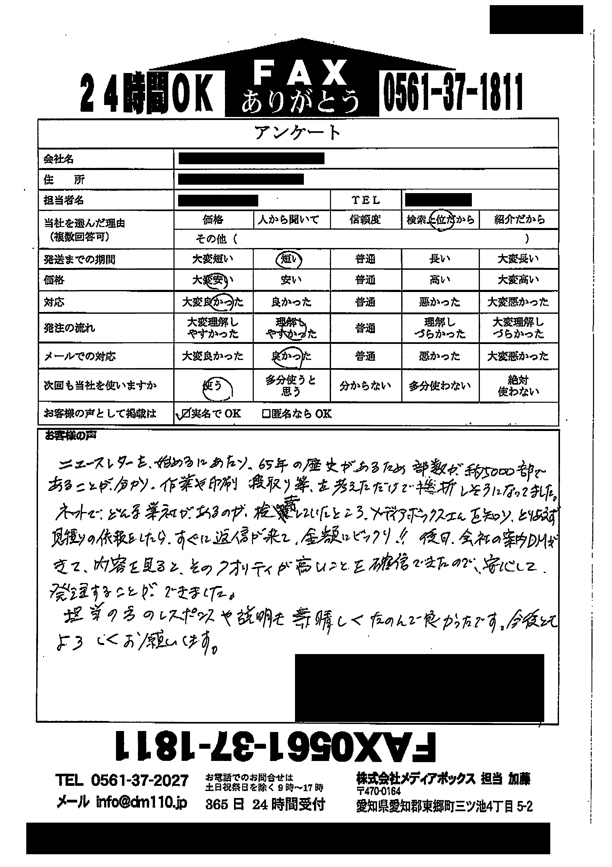 24時間OK FAX ありがとう 0561-37-1811
アンケート
会社名
住 所
担当者名 TEL
当社を選んだ理由 (複数回答可) 価格 人から聞いて 信頼度 検索上位だから 紹介だから
その他 ( )
発送までの期間 大変短い 短い 普通 長い 大変長い
価格 大変安い 安い 普通 高い 大変高い
対応 大変良かった 良かった 普通 悪かった 大変悪かった
発注の流れ 大変理解しやすかった 理解しやすかった 普通 理解しづらかった 大変理解しづらかった
メールでの対応 大変良かった 良かった 普通 悪かった 大変悪かった
次回も当社を使いますか 使う 多分使うと思う 分からない 多分使わない 絶対使わない
お客様の声として掲載は ☑実名でOK □匿名ならOK
お客様の声
ニュースレターを、始めるにあたり、65年の歴史があるため 部数が約5000部で
あることが分かり、作業や印刷 段取り等、を考えただけで挫折しそうになってました。
ネットで、どんな業社があるのか、検索していたところ、メディアボックスさんを知り、とりあえず
見積りの依頼をしたら、すぐに返信が来て、金額にビックリ!! 後日、会社の案内DMが
きて、内容を見ると、そのクオリティが高いことを確信できたので、安心して
発注することができました。
担当の方のレスポンスや説明も素晴しくたのんで良かったです。今後とも
よろしくお願いします。
FAX0561-37-1811
TEL 0561-37-2027 お電話でのお問合せは 土日祝祭日を除く9時～17時 株式会社メディアボックス 担当 加藤
〒470-0164
メール info@dm110.jp 365日 24時間受付 愛知県愛知郡東郷町三ツ池4丁目5-2